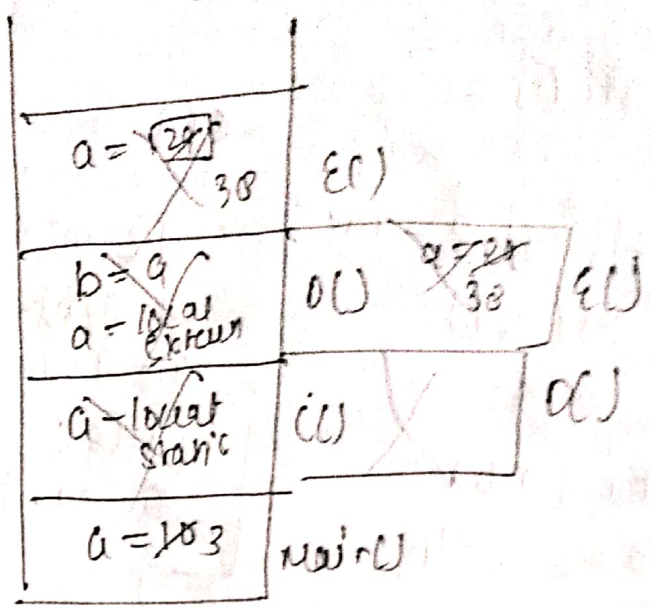 a = 38 E()
b = a
a = local extern D() a = 38 E()
a - local static C() D()
a = 3 Main()